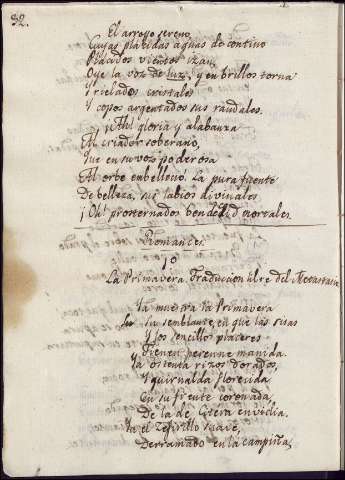 32.
El arroyo sereno,
Cuyas placidas aguas de contino
Placidos vientos rizan,
Oye la voz de luz, y en brillos torna
Y rielados cristales
Y copos argentados sus raudales.
¡Ah! gloria y alabanza
Al criador soberano,
Que en su voz poderosa
Al orbe embelleció. La pura fuente
De belleza, sus labios divinales
¡Oh! prosternados bendecid mortales.
Romances.
1º
La Primavera Traduccion libre del Metastasio
Ya muestra la Primavera
Su semblante, en que las risas
Y los sencillos placeres
Tienen perenne manida.
Ya ostenta rizos dorados,
Y guirnalda florecida
En su frente coronada,
De la de envidia.
Ya el Zefirillo suave,
Derramado en la campiña,